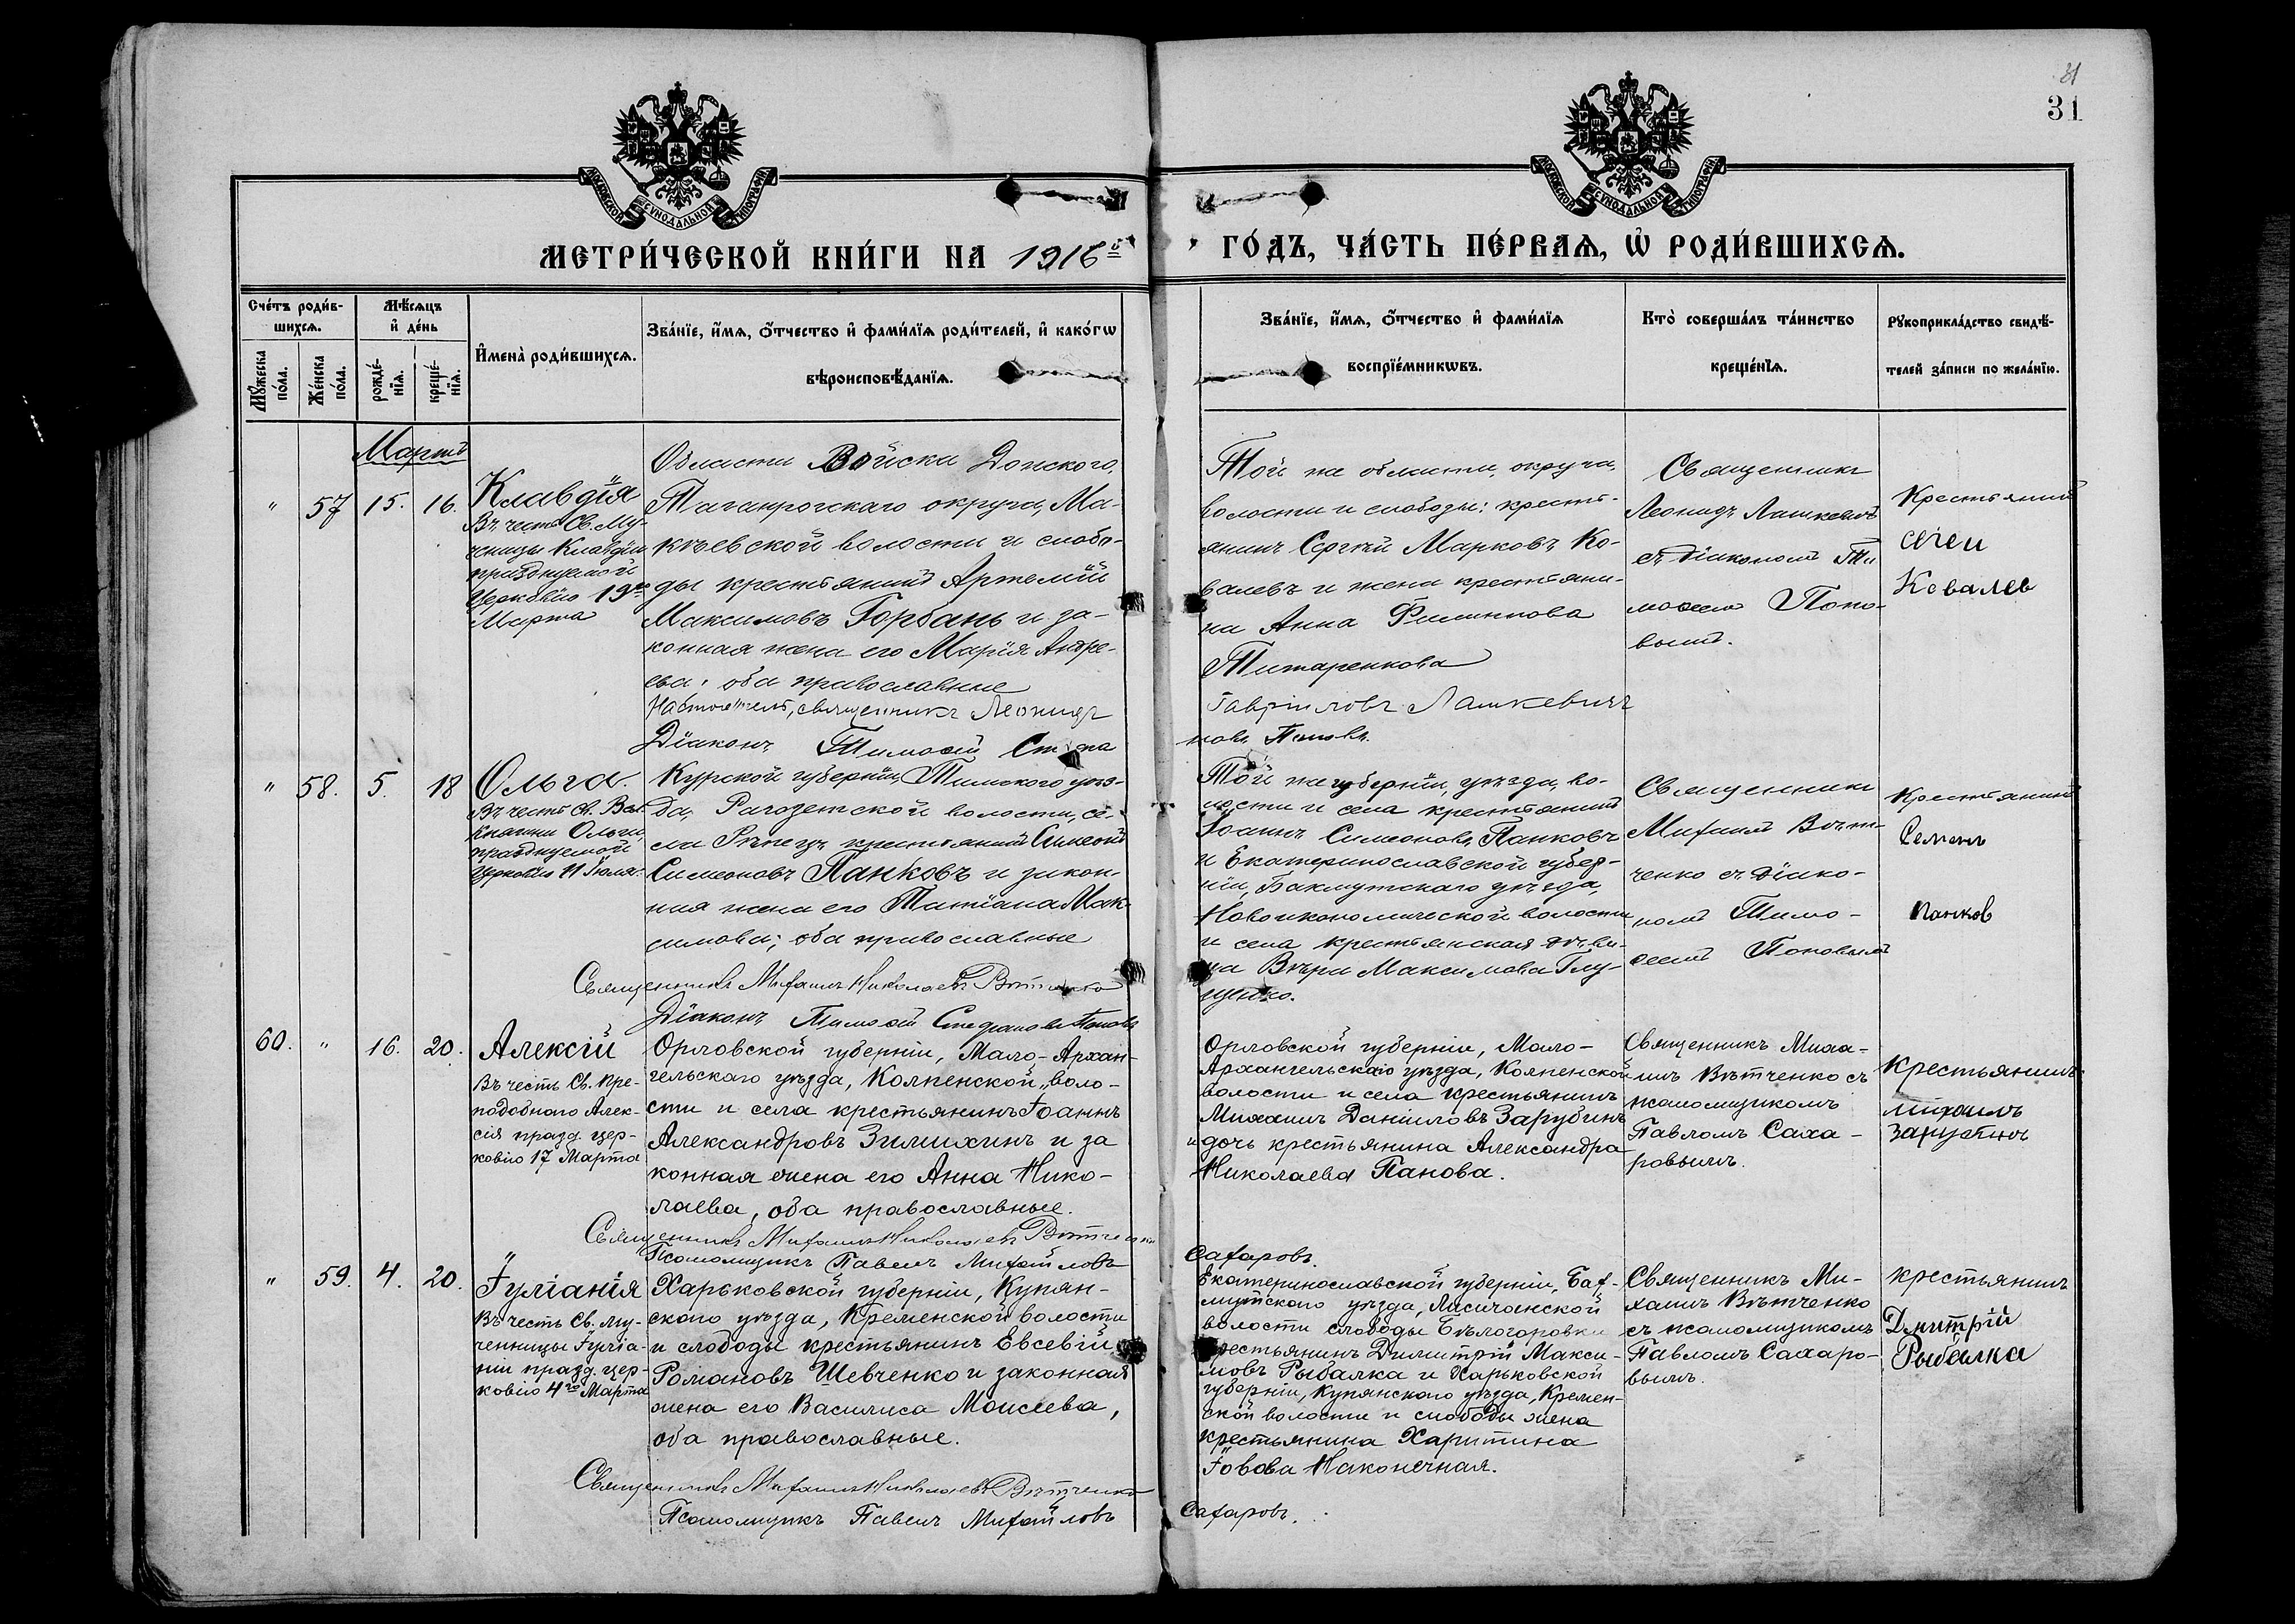 31
31
МОСКОВСКОЙ СѴНОДАЛЬНОЙ ТИПОГРАФІИ
МОСКОВСКОЙ СѴНОДАЛЬНОЙ ТИПОГРАФІИ
МЕТРИ́ЧЕСКОЙ КНИ́ГИ НА 1916й
ГО́ДЪ, ЧА́СТЬ ПЕ́РВАѦ, Ѽ РОДИ́ВШИХСѦ.
Сче́тъ роди́в-
шихсѧ.
Мꙋ́жеска
по́ла.
Же́нска
по́ла.
Мѣ́сѧцъ
и҆ де́нь
рожде́-
нїѧ.
креще́-
нїѧ.
И҆мена̀ роди́вшихсѧ.
Зва́нїе, и҆́мѧ, ѻ҆́тчество и҆ фами́лїѧ роди́телей, и҆ како́гѡ
вѣроисповѣ́данїѧ.
Зва́нїе, и҆́мѧ, ѻ҆́тчество и҆ фами́лїѧ
воспрїе́мникѡвъ.
Кто̀ соверша́лъ та́инство
креще́нїѧ.
Рꙋкоприкла́дство свидѣ́-
телей за́писи по жела́нїю.
Мартъ
" 57 15. 16.
Клавдія
Въ честь Св. Му-
ченицы Клавдіи
празднуемой
Церковію 19го
Марта
Области Войска Донского,
Таганрогскаго округа, Ма-
кѣевской волости и слобо-
ды крестьянинъ Артемій
Максимовъ Горбань и за-
конная жена его Марія Андре-
ева; оба православные
Настоятель, священникъ Леонидъ
Діаконъ Тимоѳей
Той же области, округа,
волости и слободы: кресть-
янинъ Сергѣй Марковъ Ко-
валевъ и жена крестьяни-
на Анна Филиппова
Титаренкова
Гавріиловъ Лашкевичъ
новъ Поповъ.
Священникъ
Леонидъ Лашкевичъ
съ діакономъ Ти
моѳеемъ Попо-
вымъ.
Крестьянинъ
Ковалев
" 58. 5. 18
Ольга.
Въ честь Св. Вел.
Княгини Ольги,
празднуемой
Церковію 11 Іюля.
Курской губерніи, Тимского уѣз-
да, Рагозетской волости, се-
ла Рѣпецъ крестьянинъ Симеонъ
Симеоновъ Панковъ и закон-
ная жена его Татіана Мак-
симова; оба православные
Священникъ Михаилъ Николаевъ Вѣтченко
Діаконъ Тимоѳей Стефановъ Поповъ
Той же губерніи, уѣзда, во-
лости и села крестьянинъ
Іоаннъ Симеоновъ Панковъ
и Екатеринославской губер-
ніи, Бахмутскаго уѣзда,
Новоикономической волости
и села крестьянская дѣви-
ца Вѣра Максимова Глу-
щенко.
Священникъ
Михаилъ Вѣт-
ченко съ діако-
номъ Тимо-
ѳеемъ Поповымъ
Крестьянинъ
Семенъ
Панков
60. " 16. 20.
Алексій
Въ честь Св. Пре-
подобнаго Алек-
сія празд. цер-
ковію 17 Марта
Орловской губерніи, Мало-Архан-
гельскаго уѣзда, Колпенской воло-
сти и села крестьянинъ Іоаннъ
Александровъ Зимихинъ и за
конная жена его Анна Нико-
лаева, оба православные.
Священникъ Михаилъ Николаевъ Вѣтченко
Псаломщикъ Павелъ Михайловъ
Орловской губерніи, Мало-
Архангельскаго уѣзда, Колпенской
волости и села крестьянинъ
Михаилъ Даніиловъ Зарубинъ
и дочь крестьянина Александра
Николаева Панова.
Сахаровъ.
Священникъ Миха-
илъ Вѣтченко съ
псаломщикомъ
Павломъ Саха-
ровымъ.
Крестьянинъ
Михаилъ
Зарубинъ
" 59. 4. 20.
Іуліанія
Въ честь Св. му-
ченицы Іуліа-
ніи празд. цер-
ковію 4го Марта
Харьковской губерніи, Купян-
скаго уѣзда, Кременской волости
и слободы крестьянинъ Евсевій
Романовъ Шевченко и законная
жена его Василиса Моисеева,
оба православные.
Священникъ Михаилъ Николаевъ Вѣтченко
Псаломщикъ Павелъ Михайловъ
Екатеринославской губерніи, Бах-
мутскаго уѣзда, Лисичанской
волости слободы Бѣлогоровки
крестьянинъ Димитрій Макси-
мовъ Рыбалка и Харьковской
губерніи, Купянскаго уѣзда, Кремен-
ской волости и слободы жена
крестьянина Харитина
Іовова Наконечная.
Сахаровъ.
Священникъ Ми-
хаилъ Вѣтченко
съ псаломщикомъ
Павломъ Сахаро-
вымъ.
крестьянинъ
Дмитрій
Рыбалка